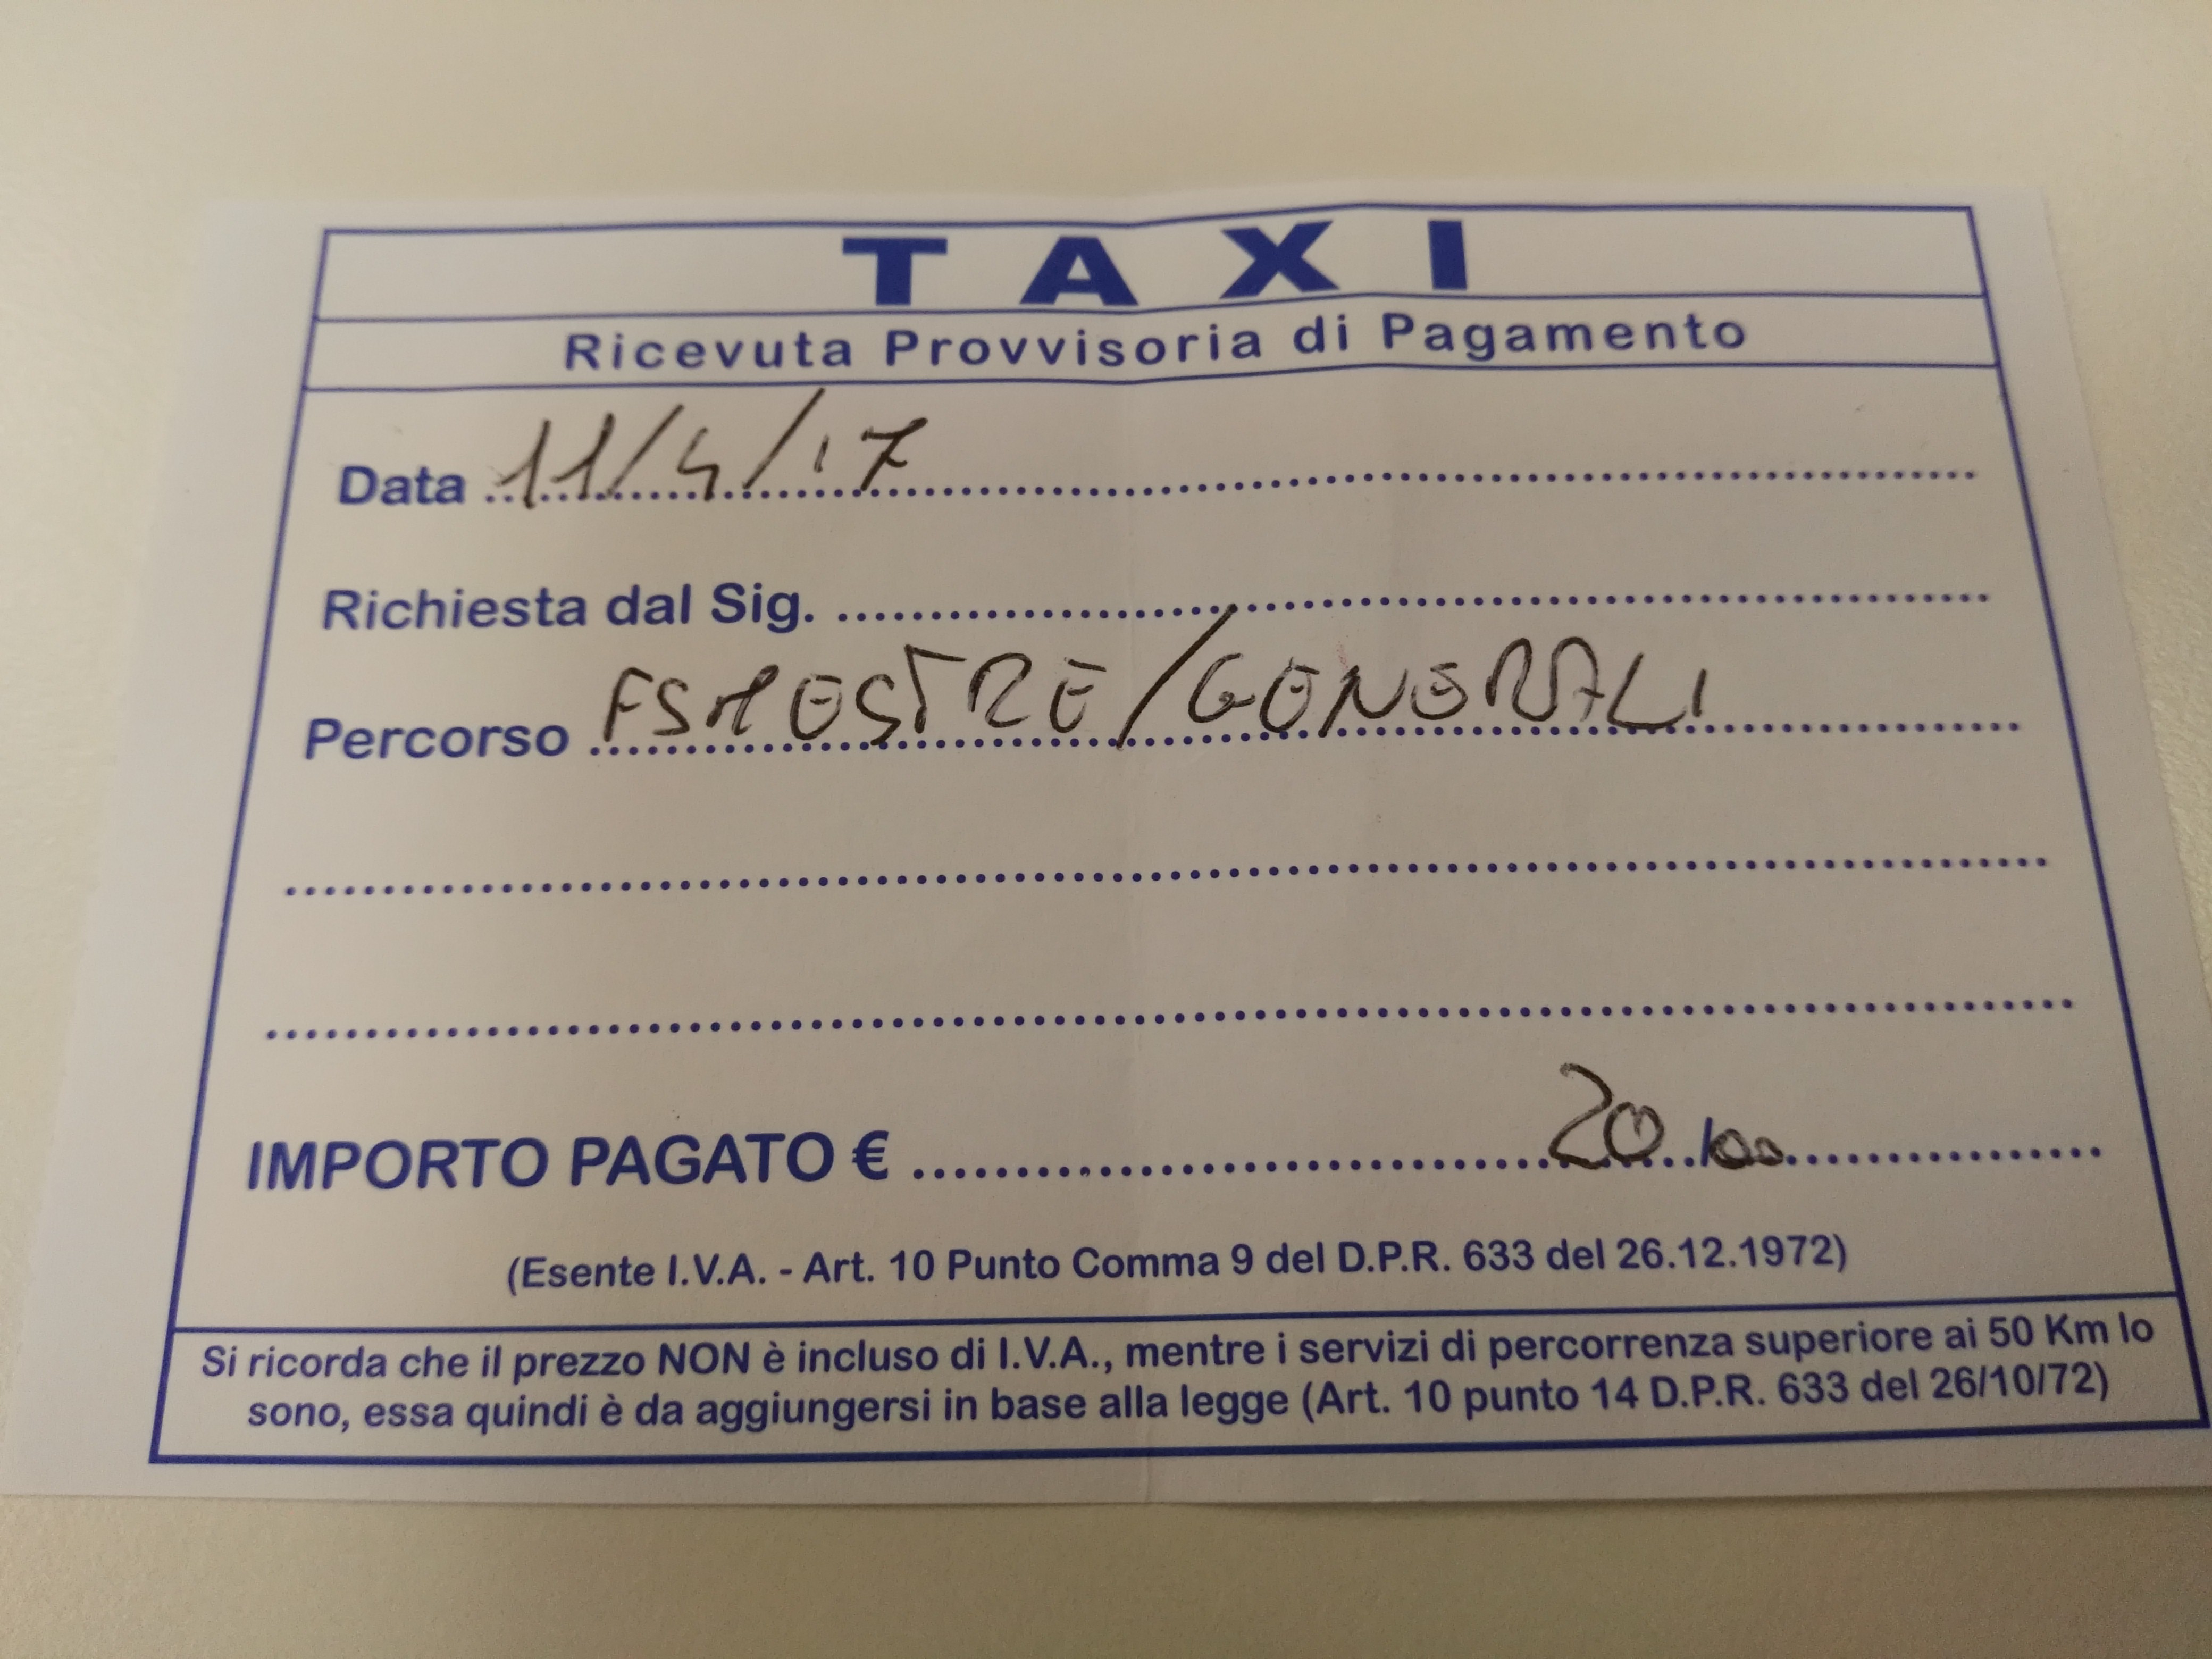 TAXI
Ricevuta Provvisoria di Pagamento
Data 11/4/17
Richiesta dal Sig.
Percorso FS MESTRE/GENERALI
IMPORTO PAGATO € 20,00
(Esente I.V.A. - Art. 10 Punto Comma 9 del D.P.R. 633 del 26.12.1972)
Si ricorda che il prezzo NON è incluso di I.V.A., mentre i servizi di percorrenza superiore ai 50 Km lo
sono, essa quindi è da aggiungersi in base alla legge (Art. 10 punto 14 D.P.R. 633 del 26/10/72)